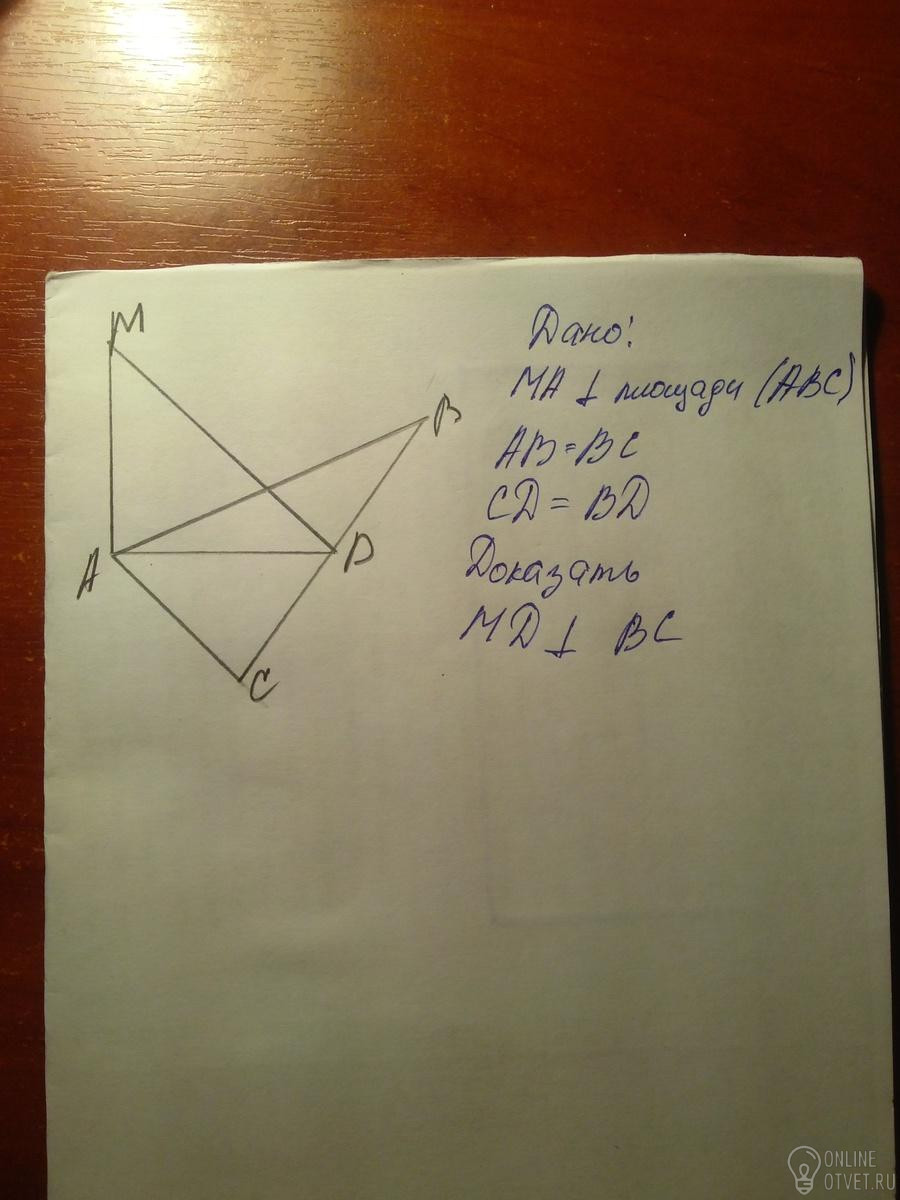 M
B
A
D
C
Дано:
MA ⊥ площади (ABC)
AB = BC
CD = BD
Доказать
MD ⊥ BC
ONLINE
OTVET.RU